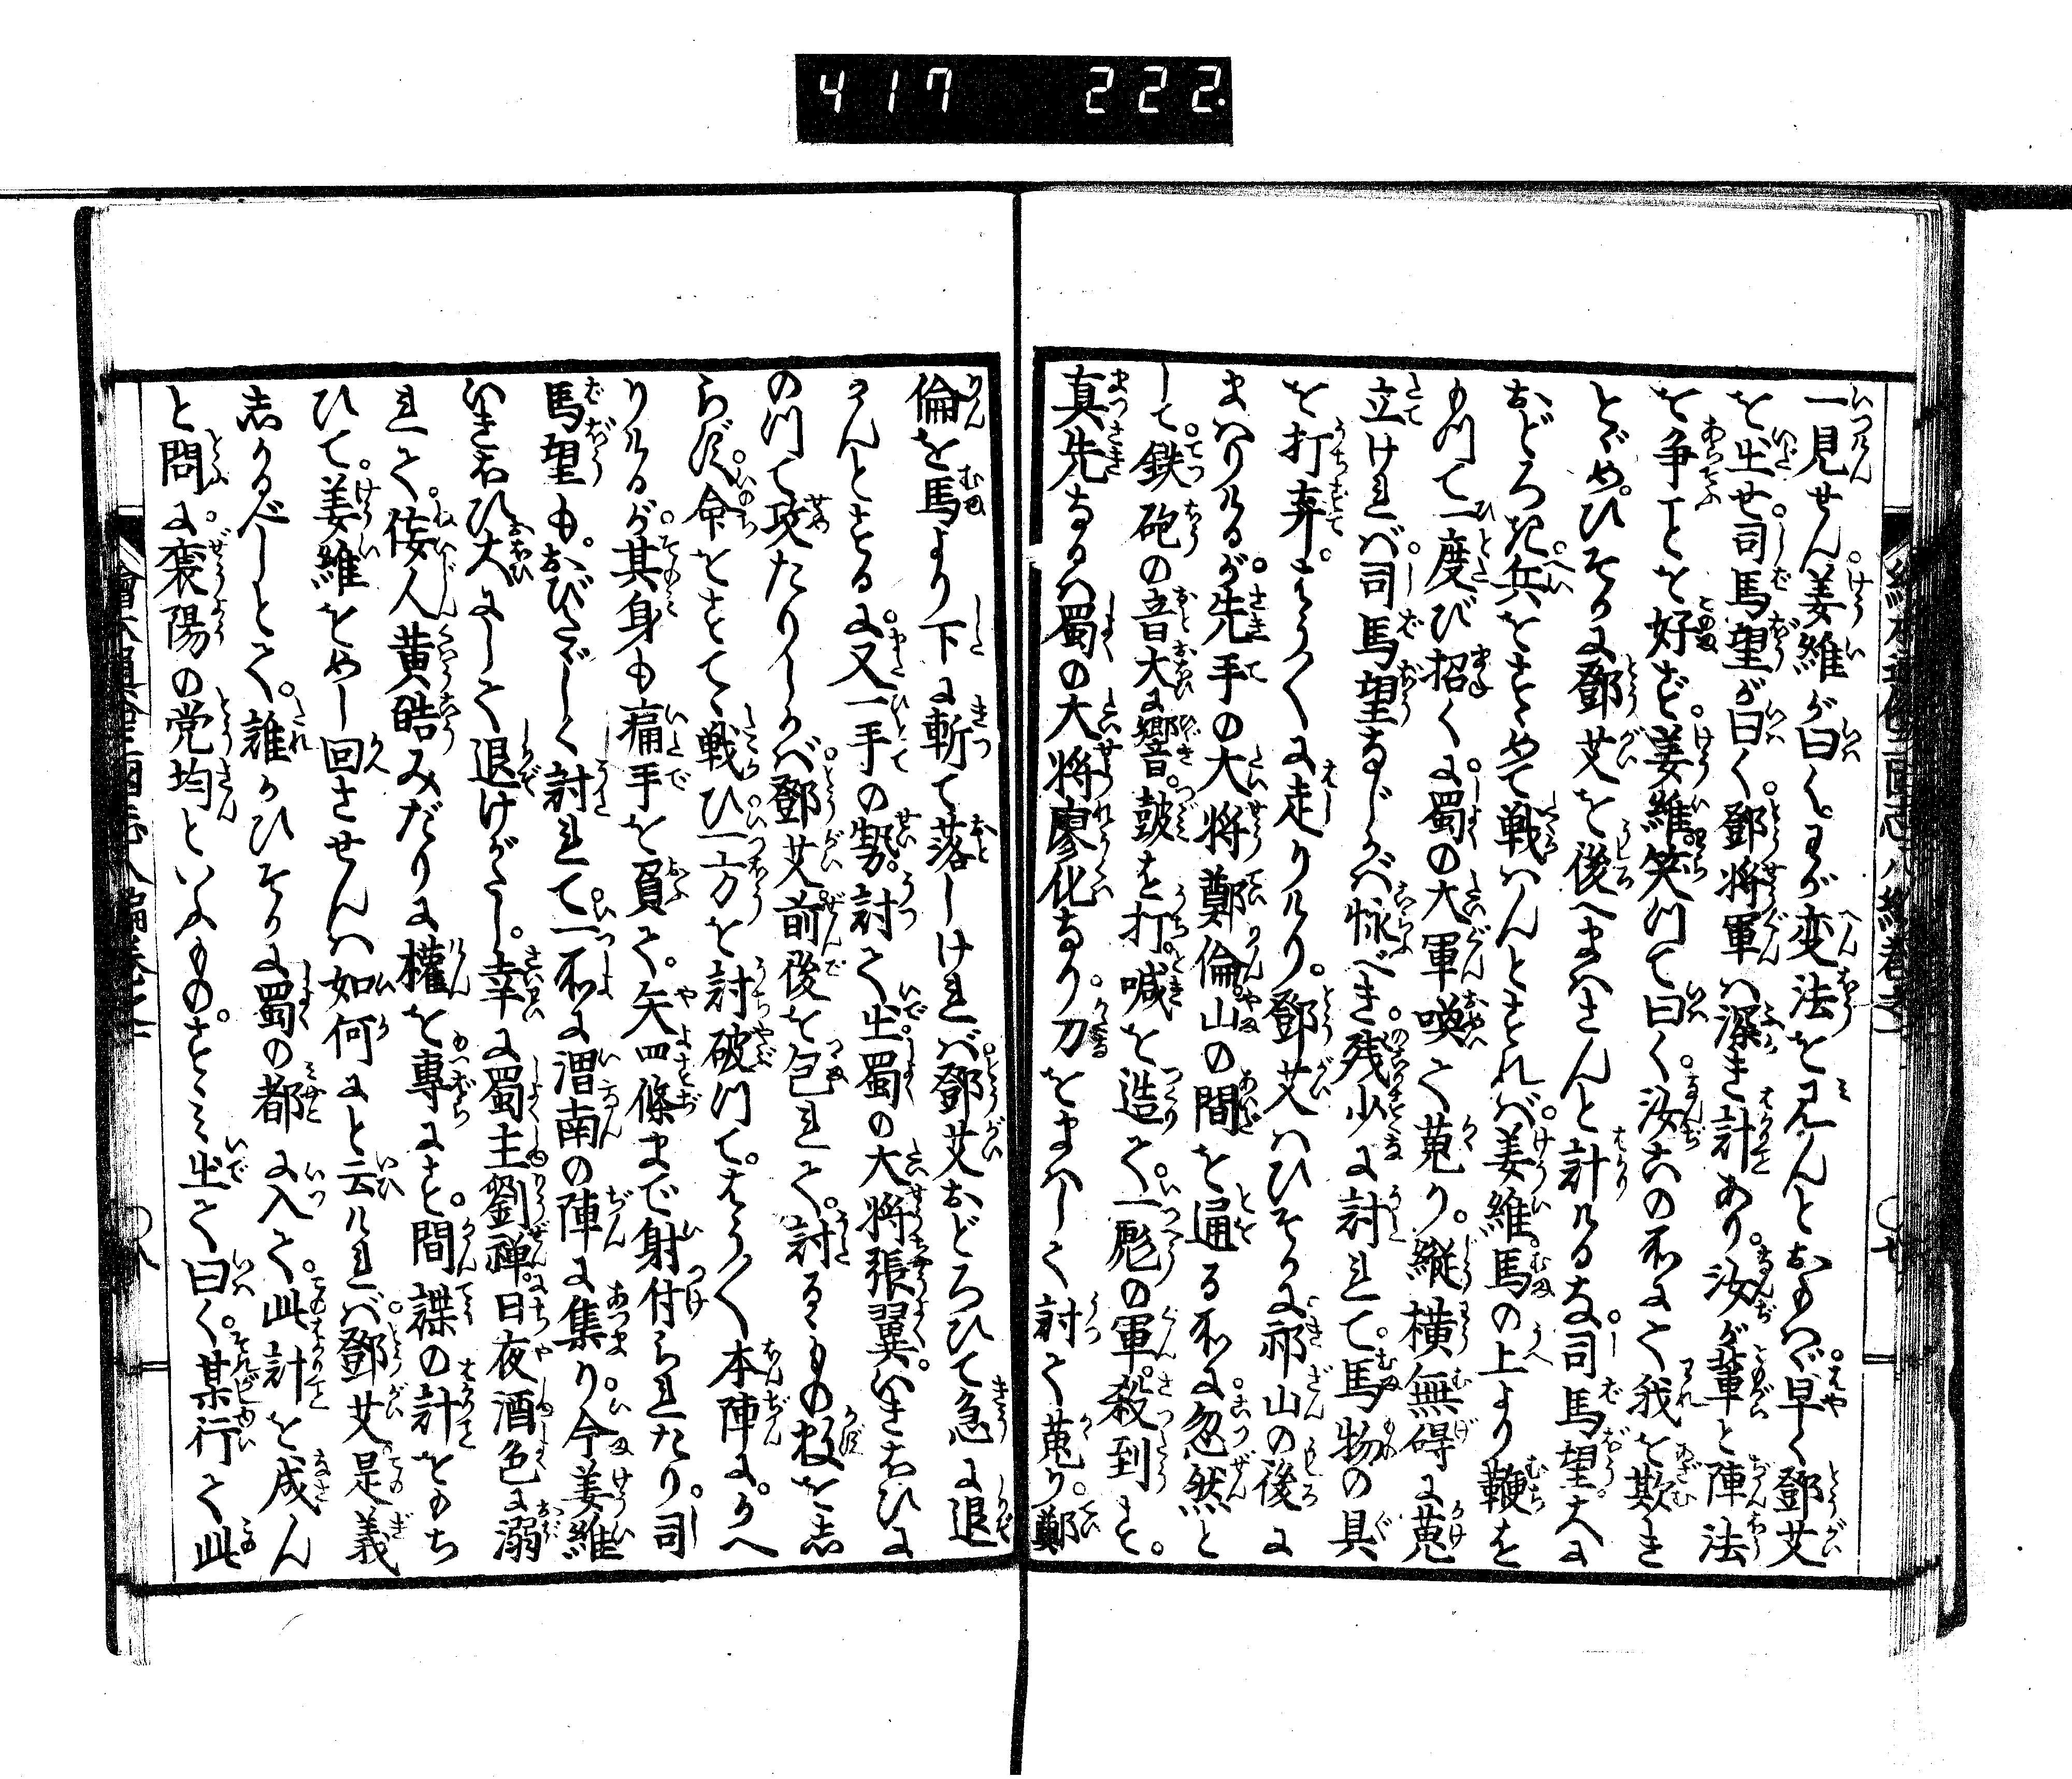 417 222
一見せん姜維が曰くわが変法を見んとおもハゞ早く鄧艾
を出せ司馬望が曰く鄧将軍ハ深き計あり汝が輩と陣法
を争ことを好ず姜維笑つて曰く汝六の所にて我を欺き
とゞめひそかに鄧艾を後へまハさんと計るな司馬望大に
おどろき兵をすゝめて戦ハんとすれバ姜維馬の上より鞭を
もつて一度び招くに蜀の大軍喚て蒐り縦横無碍に蒐
立けれバ司馬望なじかハ怺べき残少に討れて馬物の具
を打弃はう〳〵に走りけり鄧艾ハひそかに祁山の後に
まハりけるが先手の大将鄭倫山の間を通る所に忽然と
して鉄砲の音大に響鼓を打喊を造て一彪の軍殺到す
真先なるハ蜀の大将廖化なり刀をまハして討て蒐り鄭
倫を馬より下に斬て落しけれバ鄧艾おどろひて急に退
かんとするに又一手の勢討て出蜀の大将張翼いきおひに
のつて攻たりしかバ鄧艾前後を包れて討るゝもの数を志
らず命をすてゝ戦ひ一方を討破つてはう〳〵本陣にかへ
りけるが其身も痛手を負て矢四條まで射付られたり司
馬望もおびたゞしく討れて一所に渭南の陣に集り今姜維
いきおひ大にして退けがたし幸に蜀主劉禅日夜酒色に溺
れて侫人黄皓みだりに權を專にす間諜の計をもち
ひて姜維をめし回させんハ如何にと云けれバ鄧艾是義
志かるべしとて誰かひそかに蜀の都に入て此計を成ん
と問に襄陽の党均といふものすゝみ出て曰く某行て此